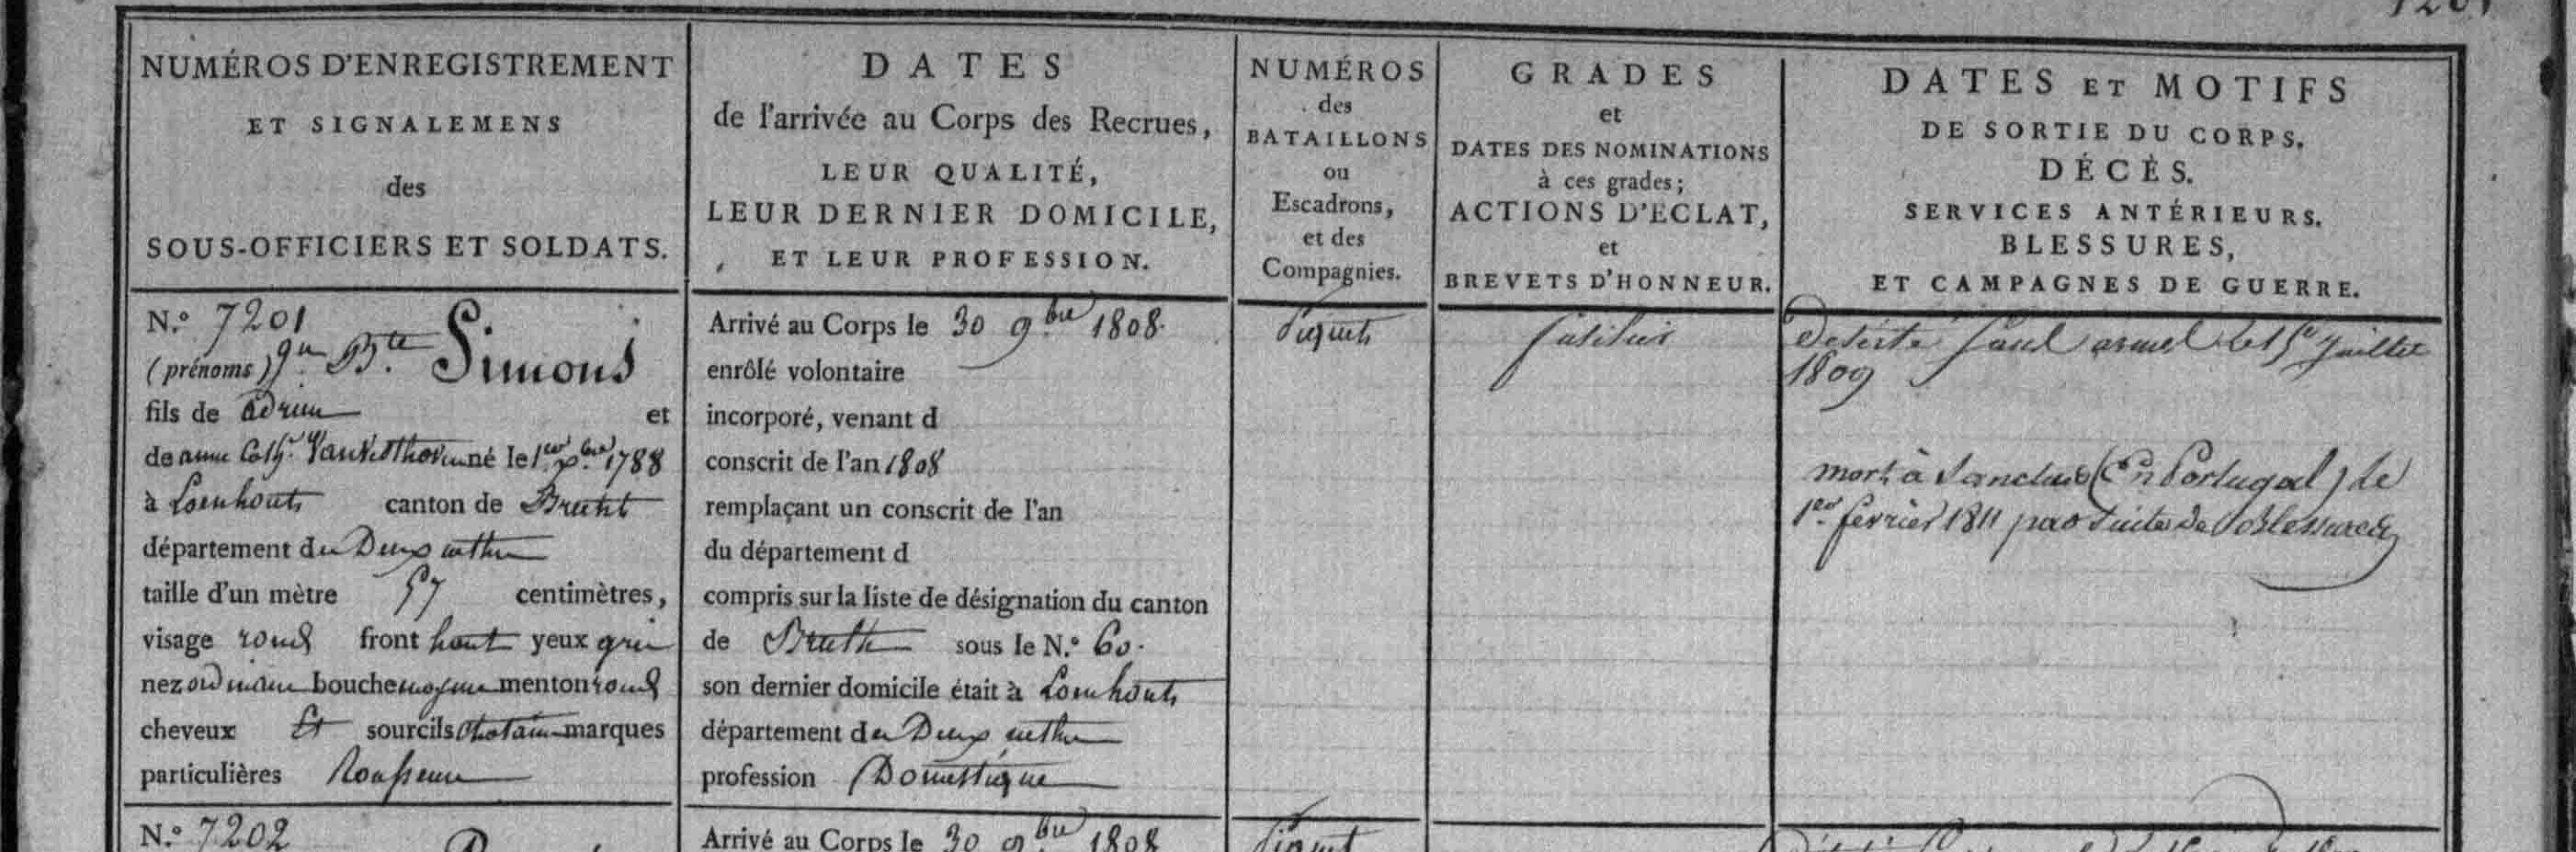 NUMÉROS D'ENREGISTREMENT
ET SIGNALEMENS
des
SOUS-OFFICIERS ET SOLDATS.
DATES
de l'arrivée au Corps des Recrues,
LEUR QUALITÉ,
LEUR DERNIER DOMICILE,
ET LEUR PROFESSION.
NUMÉROS
des
BATAILLONS
ou
Escadrons,
et des
Compagnies.
GRADES
et
DATES DES NOMINATIONS
à ces grades;
ACTIONS D'ECLAT,
et
BREVETS D'HONNEUR.
DATES ET MOTIFS
DE SORTIE DU CORPS.
DÉCÈS.
SERVICES ANTÉRIEURS.
BLESSURES,
ET CAMPAGNES DE GUERRE.
N.º 7201
(prénoms) Jn. Bte. Simons
fils de Adrien et
de anne Cath. né le 1er Xbre 1788
à Loenhout canton de Brecht
département des Deux nethes
taille d'un mètre 57 centimètres,
visage rond front haut yeux gris
nez ordinaire bouche moyenne menton rond
cheveux Et sourcils Chatain marques
particulières Rousseur
Arrivé au Corps le 30 9bre 1808.
enrôlé volontaire
incorporé, venant d
conscrit de l'an 1808
remplaçant un conscrit de l'an
du département d
compris sur la liste de désignation du canton
de Brecht sous le N.º 60.
son dernier domicile était à Loenhout
département des Deux nethes
profession Domestique
fusilier
Déserté sans armes le 15 Juillet
1809
mort à (En Portugal) le
1er février 1811 par suites de Blessures
N.º 7202
Arrivé au Corps le 30 9bre 1808